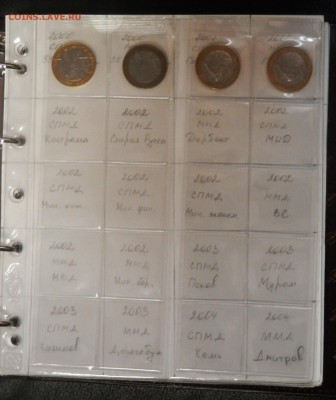 COINS.LAVE.RU
2000
2000
2002
СПМД
Кострома
2002
СПМД
Старая Русса
2002
ММД
Дербент
2002
СПМД
МИД
2002
СПМД
Мин. юст.
2002
СПМД
Мин. фин.
2002
СПМД
Мин. эконом
2002
ММД
ВС
2002
ММД
2002
ММД
Мин. обр.
2003
СПМД
Псков
2003
СПМД
Муром
2003
СПМД
Касимов
2003
ММД
Дорогобуж
2004
СПМД
Кемь
2004
ММД
Дмитров